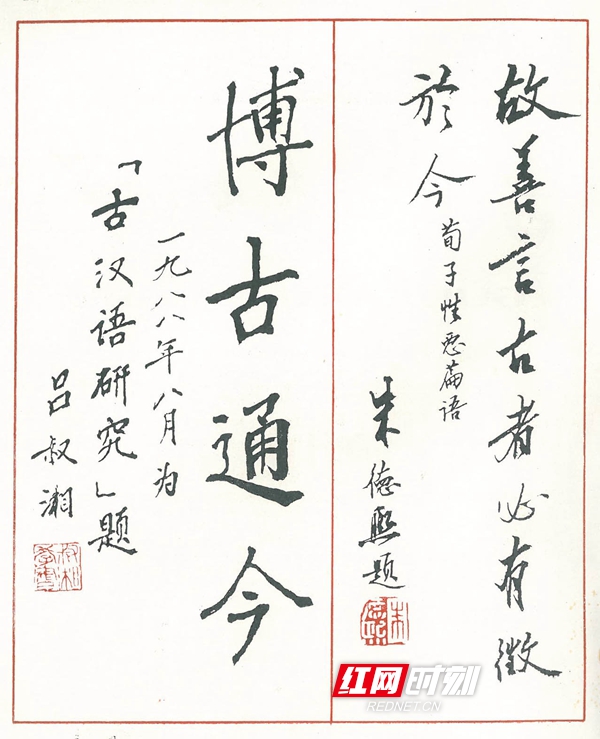 故善言古者必有徵
於今
荀子性恶篇语
朱德熙题
朱德熙
博古通今
一九八八年八月为
「古汉语研究」题
吕叔湘
红网时刻
REDNET.CN